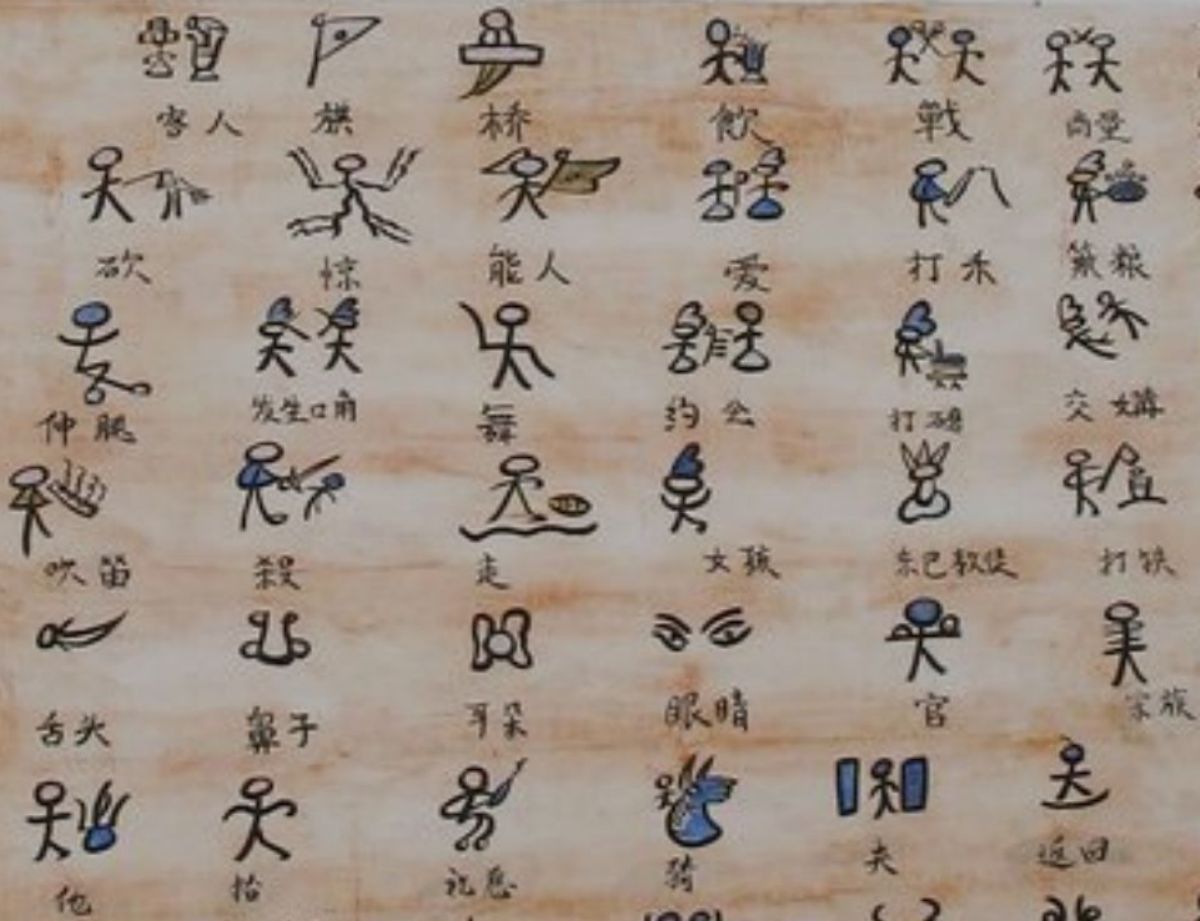 客人 棋 桥 飲 戰 商量
砍 惊 能人 爱 打禾 煑粮
伸腿 发生口角 舞 约会 打磨 交媾
吹笛 殺 走 女孩 东巴教徒 打铁
舌头 鼻子 耳朵 眼睛 官 家族
他 抬 祝愿 骑 夫 返回